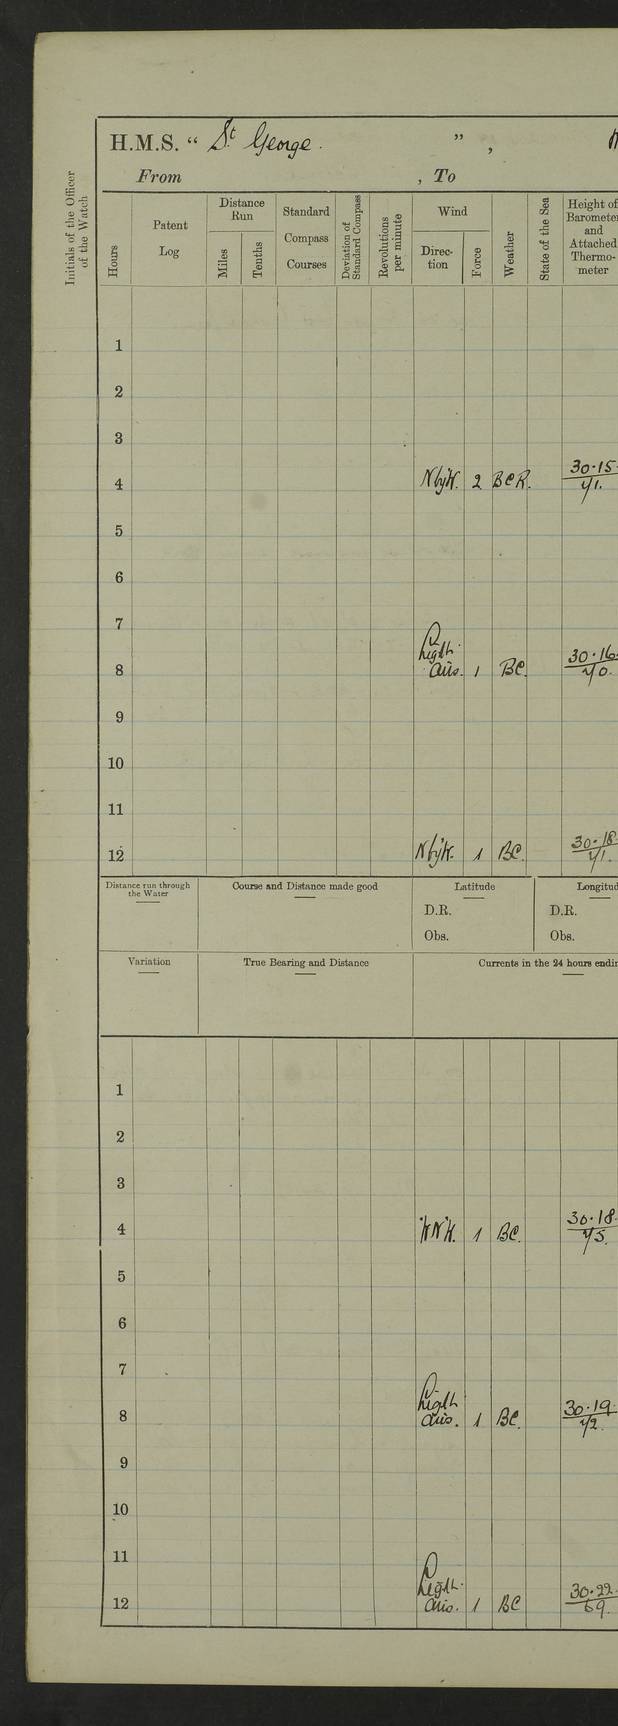 H.M.S. “ St George. ” ,
From , To
Initials of the Officer of the Watch
Hours
Patent Log
Distance Run
Miles
Tenths
Standard Compass Courses
Deviation of Standard Compass
Revolutions per minute
Wind
Direc- tion
Force
Weather
State of the Sea
Height of Barometer and Attached Thermo- meter
1
2
3
4 NbyW. 2 BCR. 30·15 71.
5
6
7
8 Light airs. 1 BC. 30·16 70.
9
10
11
12 NbyW. 1 BC. 30·18 71.
Distance run through the Water
Course and Distance made good
Latitude
D.R.
Obs.
Longitud
D.R.
Obs.
Variation
True Bearing and Distance
Currents in the 24 hours endin
1
2
3
4 WNW. 1 BC. 30·18 75.
5
6
7
8 Light airs. 1 BC. 30·19 72
9
10
11
12 Light airs. 1 BC 30·22 69.